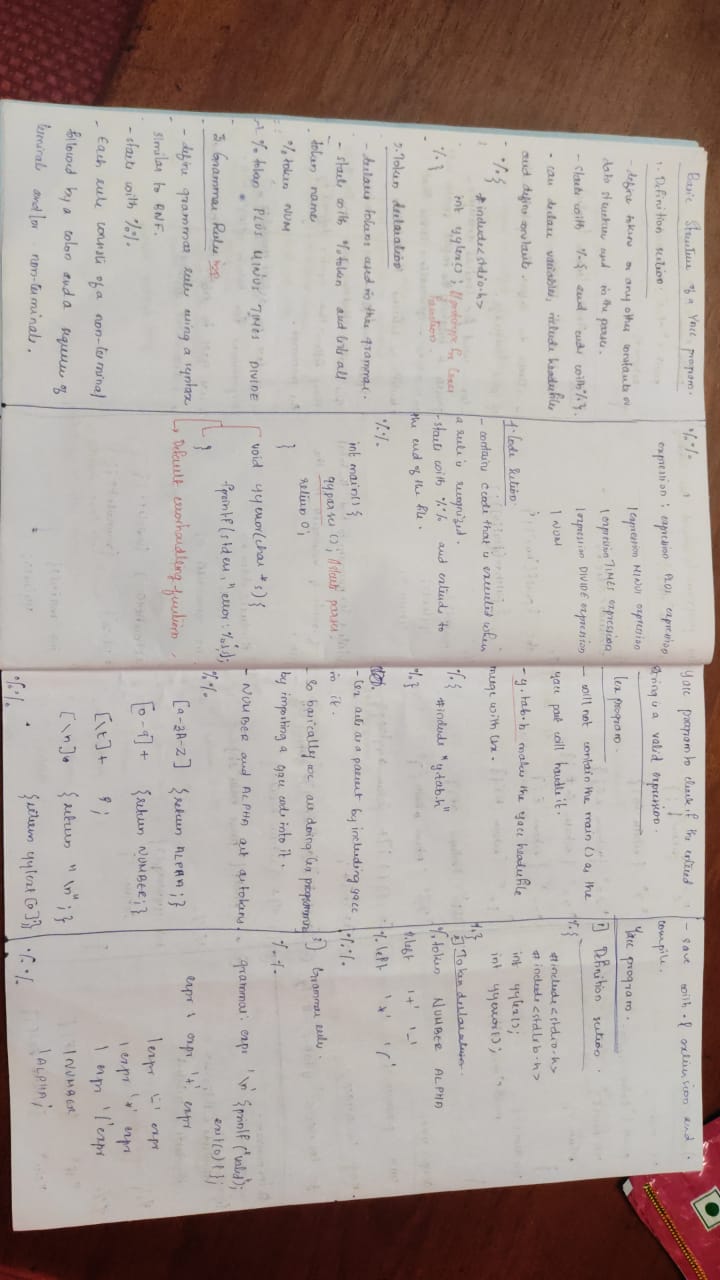 Basic Structure of a Yacc program.
1. Definition section.
- define tokens or any other constants or
data structure used in the parser.
- starts with %{ and ends with %}.
- can declare variables, include headerfiles
and define constants.
- %{
#include<stdio.h>
int yylex(); // prototype for lexer
function
%}
2. Token declaration
- declares tokens used in the grammar.
- starts with %token and lists all
token name
%token NUM
%token PLUS MINUS TIMES DIVIDE
3. Grammar Rules
- define grammar rules using a syntax
similar to BNF.
- starts with %%.
- Each rule consists of a non-terminal
followed by a colon and a sequence of
terminals and/or non-terminals.
%%
expression : expression PLUS expression
| expression MINUS expression
| expression TIMES expression
| expression DIVIDE expression
| NUM
;
4. Code Section
- contains C code that is executed when
a rule is recognized.
- starts with %% and extends to
the end of the file.
%%
int main() {
yyparse(); // start parser
return 0;
}
void yyerror(char *s) {
fprintf(stderr, "error: %s");
}
→ Default errorhandling function.
Yacc program to check if the entered
string is a valid expression.
Lex program.
- will not contain the main() as the
yacc part will handle it.
- y.tab.h makes the yacc headerfile
merge with Lex.
%{
#include "y.tab.h"
%}
- Lex acts as a parent by including yacc
in it.
- So basically we are doing lex programming
by importing a yacc code into it.
- NUMBER and ALPHA act as tokens.
%%
[a-zA-Z] {return ALPHA;}
[0-9]+ {return NUMBER;}
[\t]+ ;
[\n] {return "\n";}
. {return yytext[0];}
%%
- save with .l extension and
compile.
Yacc program.
1) Definition section.
%{
#include<stdio.h>
#include<stdlib.h>
int yylex();
int yyerror();
%}
2) Token declaration.
%token NUMBER ALPHA
%left '+' '-'
%left '*' '/'
3) Grammar rules.
%%
grammar: expr '\n' {printf("valid");
exit(0);};
expr : expr '+' expr
| expr '-' expr
| expr '*' expr
| expr '/' expr
| NUMBER
| ALPHA;
%%